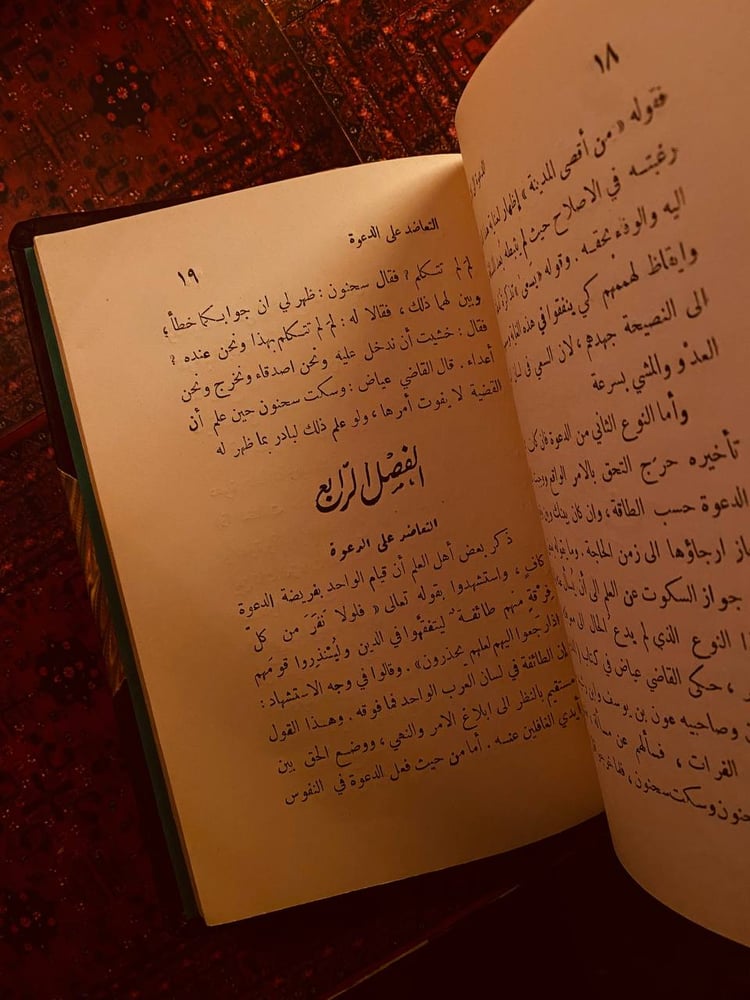 ١٨
فقوله « من أقصى المدينة » إظهار
رغبته في الاصلاح حيث لم
اليه والوفاء بحقه . وقوله « يسعى »
وايقاظ لهممهم كي ينفقوا في هذه
الى النصيحة جهدهم ، لان السعي في
العدو والمشي بسرعة
وأما النوع الثاني من الدعوة فان كان
تأخيره حرج التحق بالامر الواقع
الدعوة حسب الطاقة ، وان كان
ارجاؤها الى زمن الحاجة .
جواز السكوت عن العلم الى أن يسأل
النوع الذي لم يدع الحال الى
، حكى القاضي عياض في كتاب
وصاحبيه عون بن يوسف وابن
الفرات ، فسألهم عن
وسكت سحنون ، فلما
التعاضد على الدعوة
١٩
لم لم تتكلم ? فقال سحنون : ظهر لي ان جوابكما خطأ ،
وبين لهما ذلك ، فقالا له : لم لم تتكلم بهذا ونحن عنده ?
فقال : خشيت أن ندخل عليه ونحن اصدقاء ونخرج ونحن
أعداء . قال القاضي عياض : وسكت سحنون حين علم أن
القضية لا يفوت أمرها ، ولو علم ذلك لبادر بما ظهر له
الفصل الرابع
التعاضد على الدعوة
ذكر بعض أهل العلم أن قيام الواحد بفريضة الدعوة
كاف ، واستشهدوا بقوله تعالى « فلولا نفر من كل
فرقة منهم طائفة ليتفقهوا في الدين ولينذروا قومهم
اذا رجعوا اليهم لعلهم يحذرون » . وقالوا في وجه الاستشهاد :
ان الطائفة في لسان العرب الواحد فما فوقه . وهذا القول
مستقيم بالنظر الى ابلاغ الامر والنهي ، ووضع الحق بين
أيدي الغافلين عنه . أما من حيث فعل الدعوة في النفوس